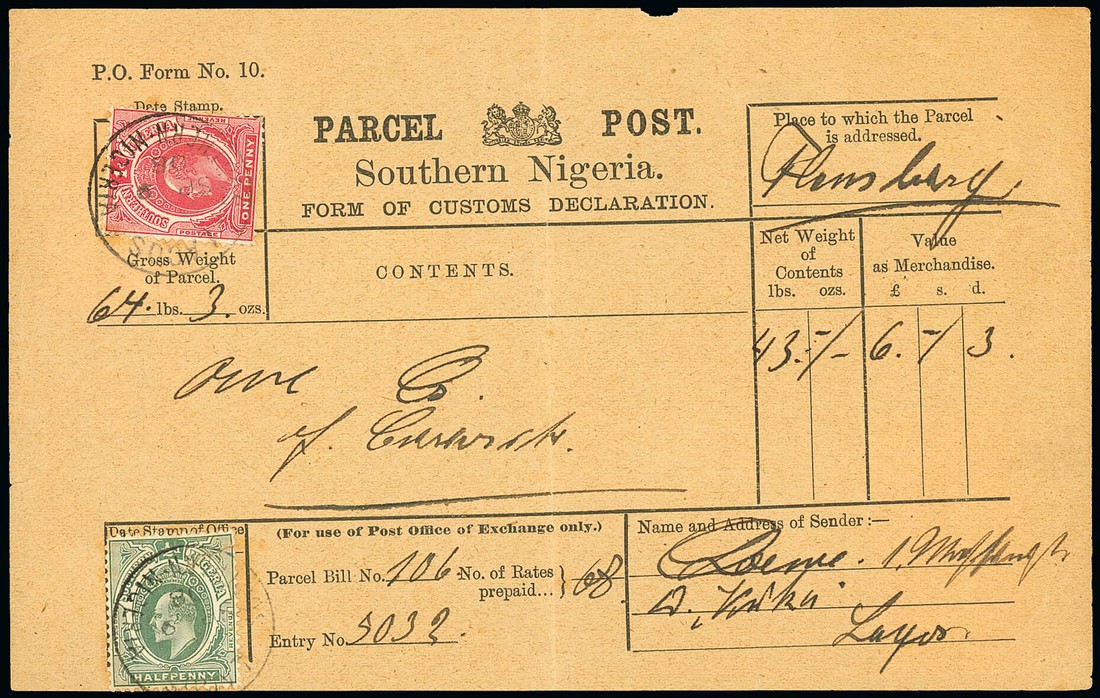 P.O. Form No. 10.
Date Stamp.
PARCEL POST.
Southern Nigeria.
FORM OF CUSTOMS DECLARATION.
Place to which the Parcel
is addressed.
Flensburg
SOUTHERN NIGERIA
POSTAGE
ONE PENNY
Gross Weight
of Parcel.
64. lbs. 3. ozs.
CONTENTS.
Net Weight
of
Contents
lbs. ozs.
Value
as Merchandise.
£ s. d.
43. -/- 6. -/ 3.
of
Date Stamp of Office
NIGERIA
HALFPENNY
(For use of Post Office of Exchange only.)
Parcel Bill No. 106 No. of Rates
prepaid... } 68
Entry No. 5032
Name and Address of Sender:—
Lagos